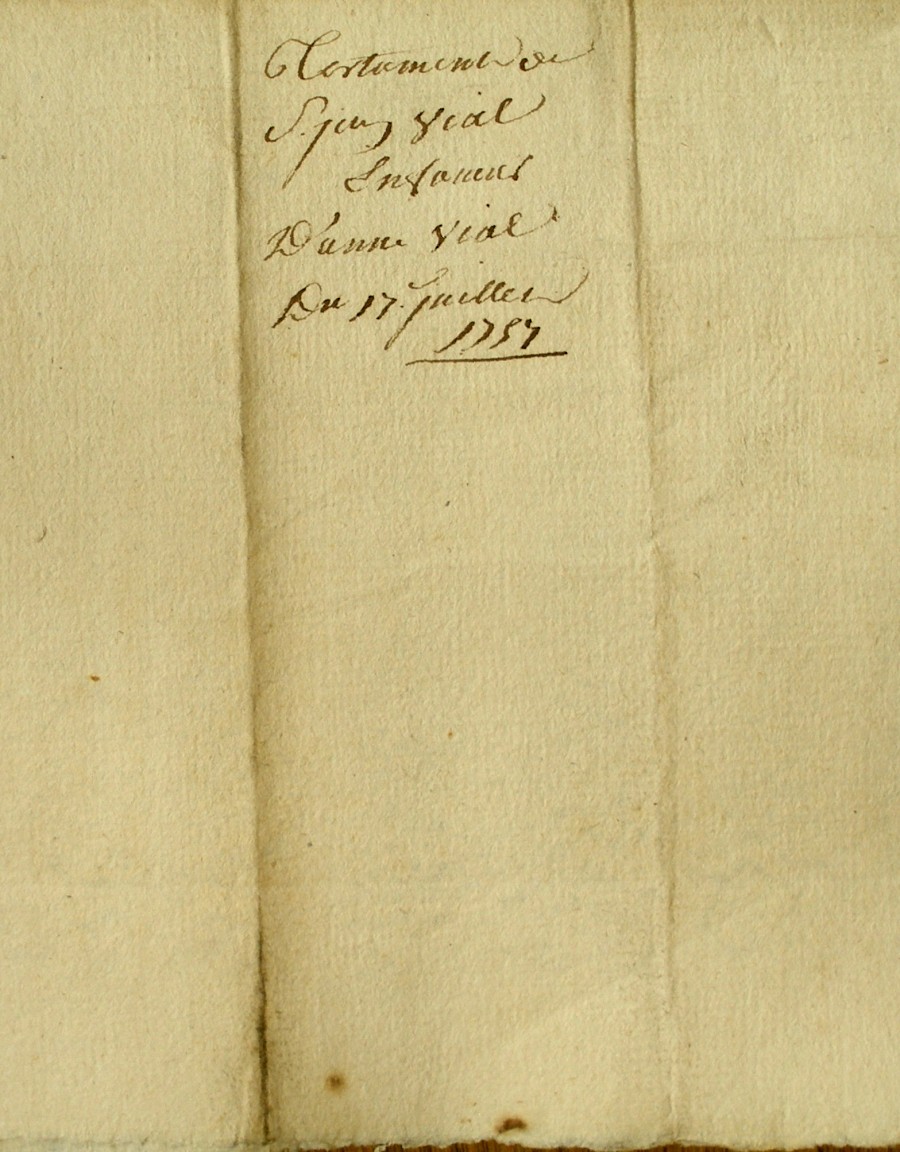 Testament de
S. jean Vial
En faveur
D'anne Vial
Du 17. juillet
1757